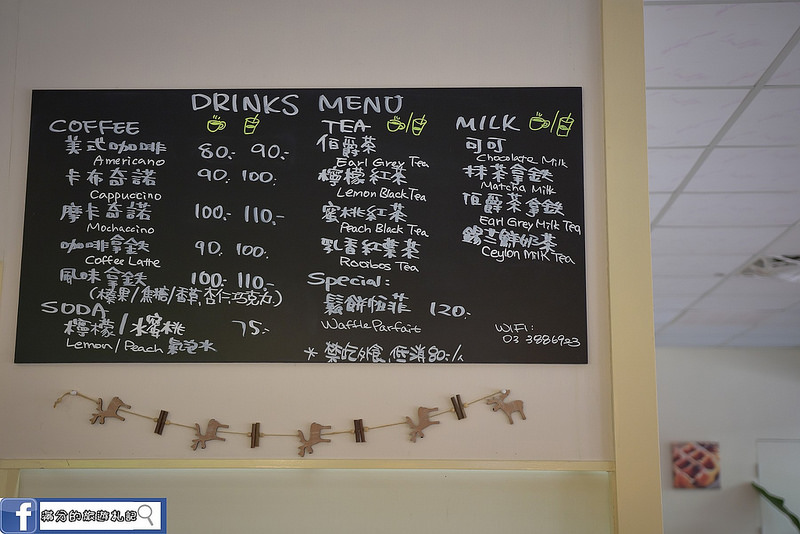 DRINKS MENU
COFFEE
美式咖啡 80.- 90.-
Americano
卡布奇諾 90. 100.
Cappuccino
摩卡奇諾 100.- 110.-
Mochaccino
咖啡拿鐵 90. 100.
Coffee Latte
風味拿鐵 100.- 110.-
(榛果/焦糖/香草,杏仁,巧克力)
SODA
檸檬/水蜜桃 75.-
Lemon/Peach 氣泡水
TEA
伯爵茶
Earl Grey Tea
檸檬紅茶
Lemon Black Tea
蜜桃紅茶
Peach Black Tea
乳香紅葉茶
Rooibos Tea
Special:
鬆餅恒菲 120.
Waffle Parfait
* 禁吃外食,低消80.-/人
MILK
可可
Chocolate Milk
抹茶拿鐵
Matcha Milk
伯爵茶拿鐵
Earl Grey Milk Tea
錫蘭鮮奶茶
Ceylon Milk Tea
WIFI:
03 3886923
滿分的旅遊札記